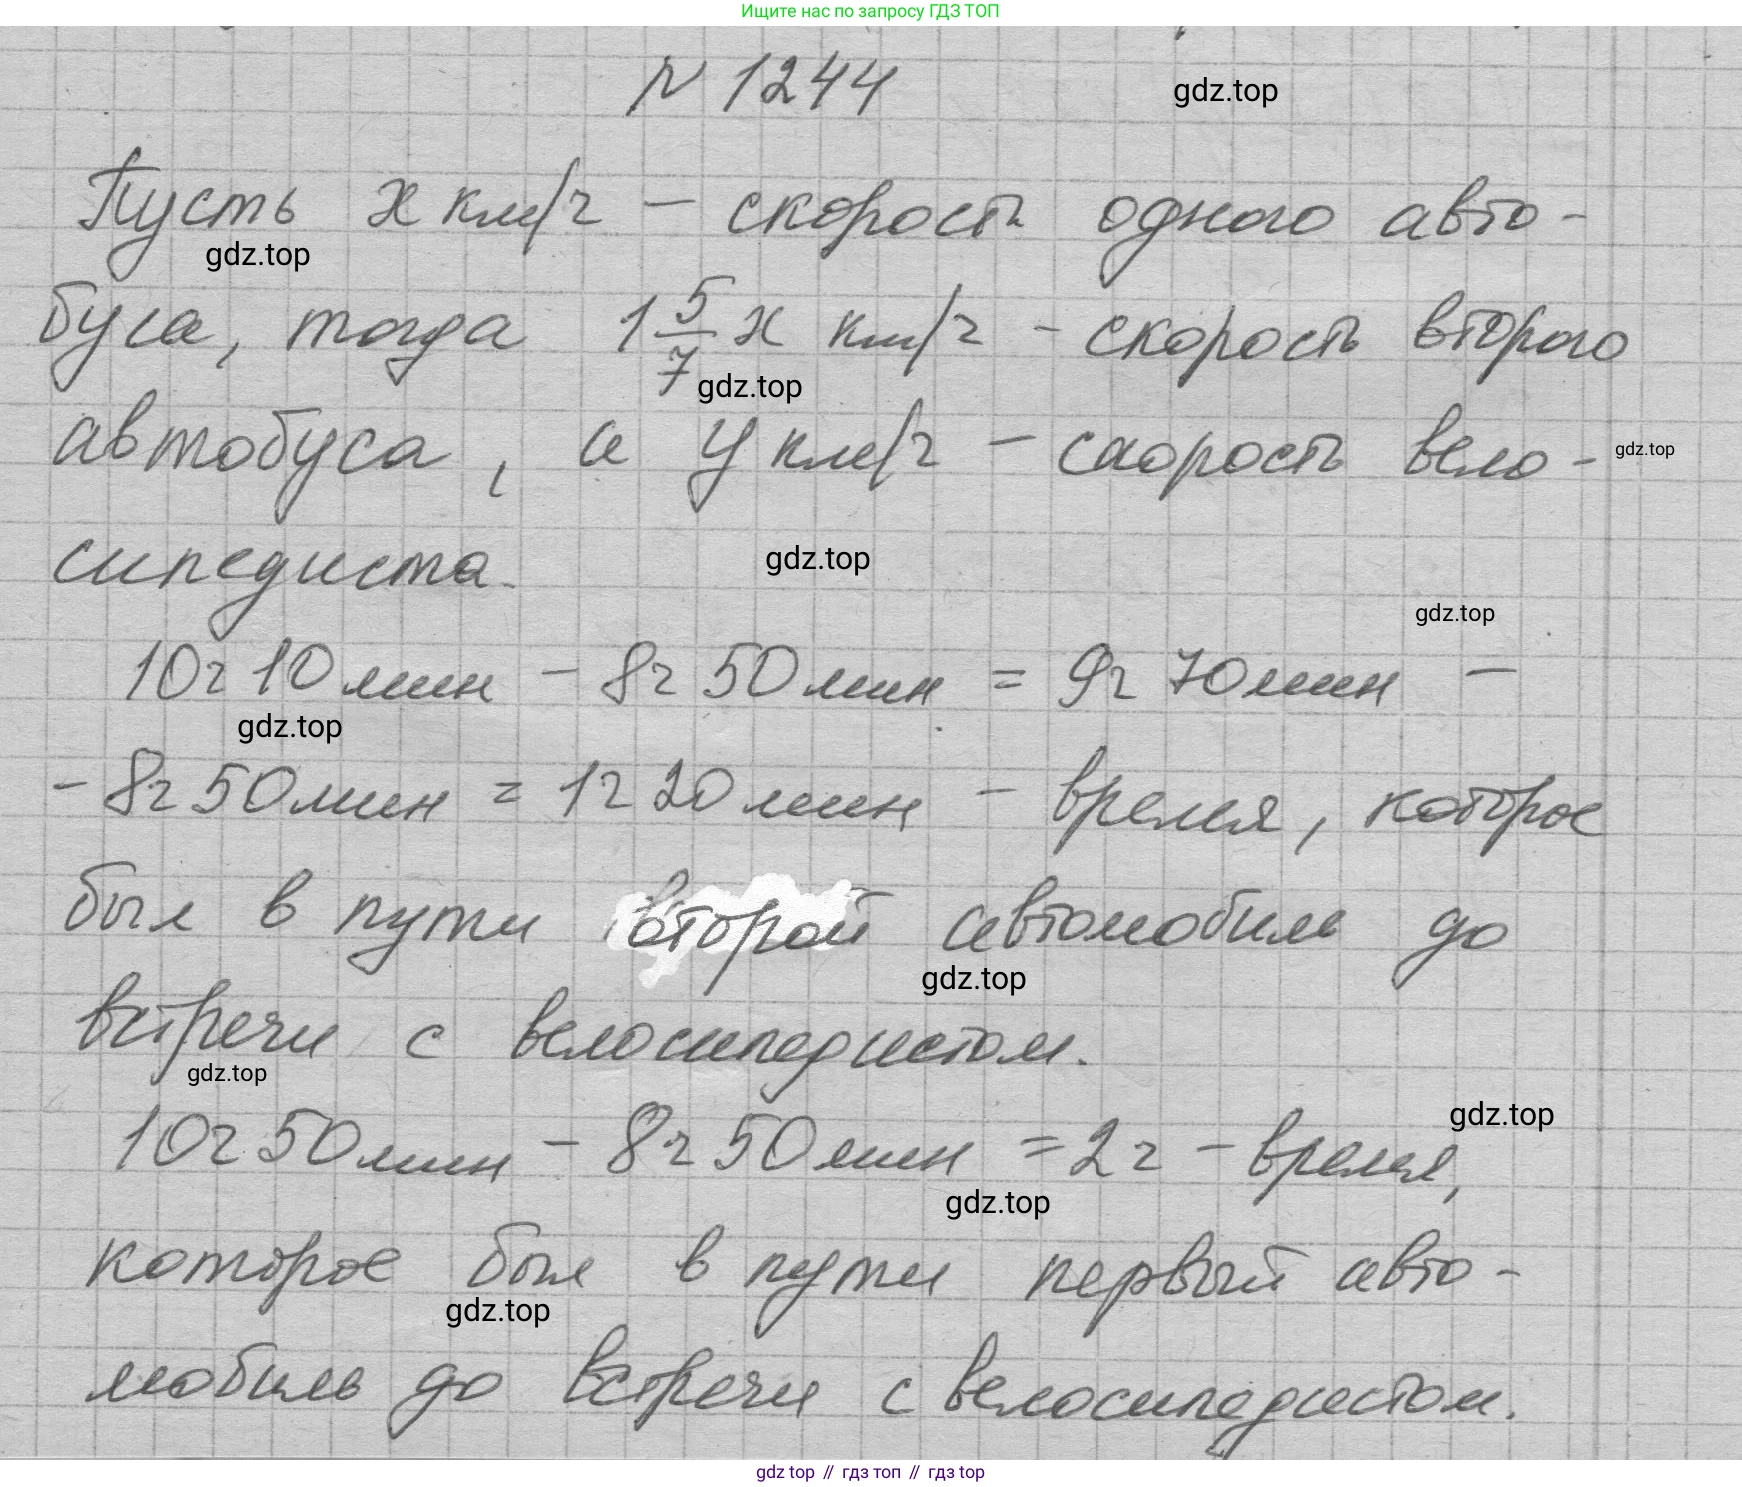 Ищите нас по запросу ГДЗ ТОП
N 1244
gdz.top
Пусть x км/ч – скорость одного авто-
gdz.top
буса, тогда 1 5/7 x км/ч – скорость второго
gdz.top
автобуса, а y км/ч – скорость вело-
gdz.top
сипедиста.
gdz.top
gdz.top
10ч 10мин – 8ч 50мин = 9ч 70мин –
gdz.top
– 8ч 50мин = 1ч 20мин – время, которое
был в пути второй автомобиль до
gdz.top
встречи с велосипедистом.
gdz.top
gdz.top
10ч 50мин – 8ч 50мин = 2ч – время,
gdz.top
которое был в пути первый авто-
gdz.top
мобиль до встречи с велосипедистом.
gdz top // гдз топ // гдз top